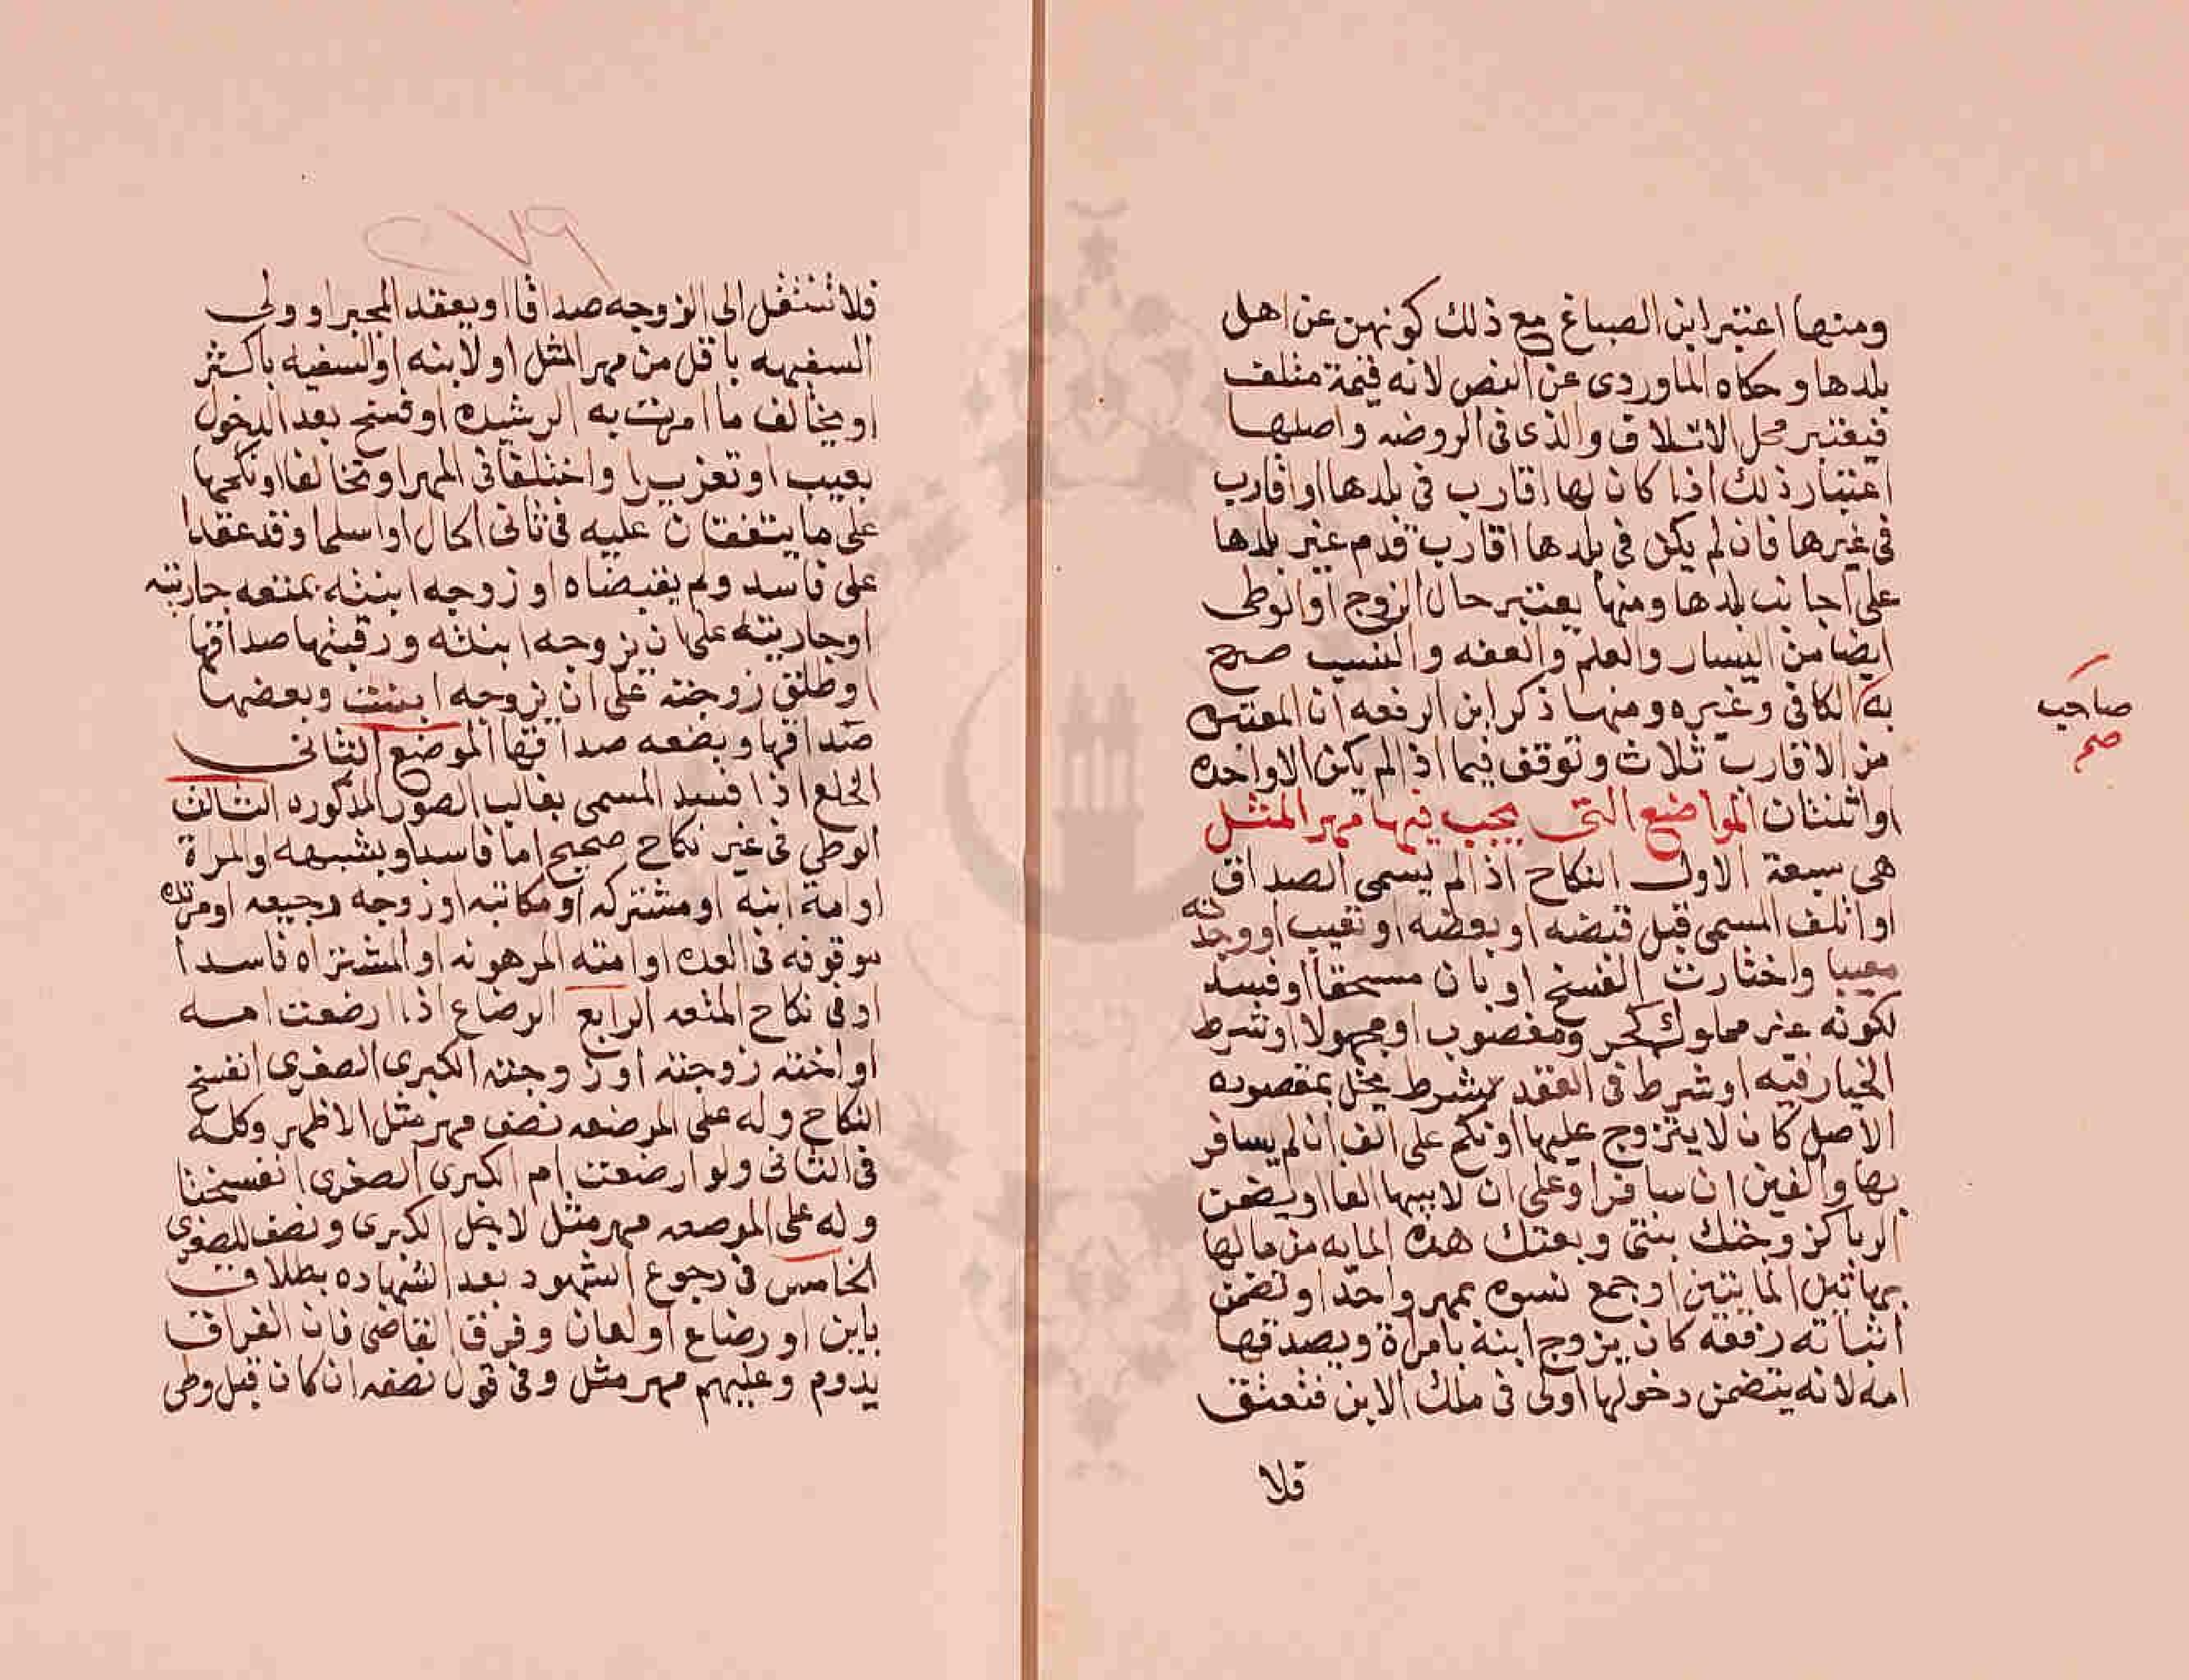 ومنها اعتبر ابن الصباغ مع ذلك كونهن عن اهل
بلدها وحكاه الماوردى عن النص لانه قيمة متلف
فيعتبر محل الاتلاق والذى فى الروضه واصلها
اعتبار ذلك اذا كان لها اقارب فى بلدها او اقارب
فى غيرها فان لم يكن فى بلدها اقارب قدم غير بلدها
على اجانب بلدها ومنها يعتبر حال الزوج او الوطى
ايضا من اليسار والعلم والعفه والنسب صرح
به الكافى وغيره ومنها ذكر ابن الرفعه ان المعتبر
صاحب
صح
من الاقارب ثلاث وتوقف فيما اذا لم يكن الا واحده
او اثنتان المواضع التى يجب فيها مهر المثل
هى سبعة الاول النكاح اذا لم يسمى الصداق
او اتلف المسمى قبل قبضه او بعضه او تعيب او وجدته
معيبا واختارت الفسخ او بان مستحقا او فسد
لكونه غير مملوك كحر ومغصوب او مجهولا او شرط
الخيار فيه او شرط فى العقد بشرط يخل بمقصوده
الاصل كان لا يتزوج عليها او نكح على الف ان لم يسافر
بها والفين ان سافر او على ان لابيها الفا او يضمن
الربا كزوجتك بنتى وبعتك هذه المايه من مالها
بهاتين المايتين او جمع نسوه بمهر واحد او تضمن
اثباته رفعه كان يزوج ابنه بامراة ويصدقها
امه لانه يتضمن دخولها اولى فى ملك الابن فتعتق
فلا
٢٧٩
فلا تنتقل الى الزوجه صداقا او يعقد المجبر او ولى
السفيهه باقل من مهر المثل او لابنه او السفيه باكثر
او يخالف ما امرت به الرشيده او فسخ بعد الدخول
بعيب او تغرير او اختلفا فى المهر او تخالفا او نكحها
على ما يتفقان عليه فى ثانى الحال او اسلما وقد عقدا
على فاسد ولم يقبضاه او زوجه ابنته بمتعه جاريته
او جاريته على ان يزوجه ابنته ورقبتها صداقها
او طلق زوجته على ان يزوجه ابنت وبعضها
صداقها وبضعه صداقها الموضع الثانى
الخلع اذا فسد المسمى بغالب الصور المذكوره الثالث
الوطى فى غير نكاح صحيح اما فاسد او بشبهه او المراة
او امة ابنه او مشتركه او مكاتبه او زوجه رجيعه او مرتده
موقوفه فى العده او امته المرهونه او المشتراه فاسدا
او فى نكاح المتعه الرابع الرضاع اذا ارضعت امه
او اخته زوجته او زوجته الكبرى الصغرى انفسخ
النكاح وله على المرضعه نصف مهر مثل الاظهر وكله
فى الثانى ولو ارضعت ام الكبرى الصغرى انفسختا
وله على الموصعه مهر مثل لاجل الكبرى ونصف للصغرى
الخامس فى رجوع الشهود بعد الشهاده بطلاق
باين او رضاع او لعان وفرق القاضى فان الفراق
يدوم وعليهم مهر مثل وفى قول نصفه ان كان قبل وطى